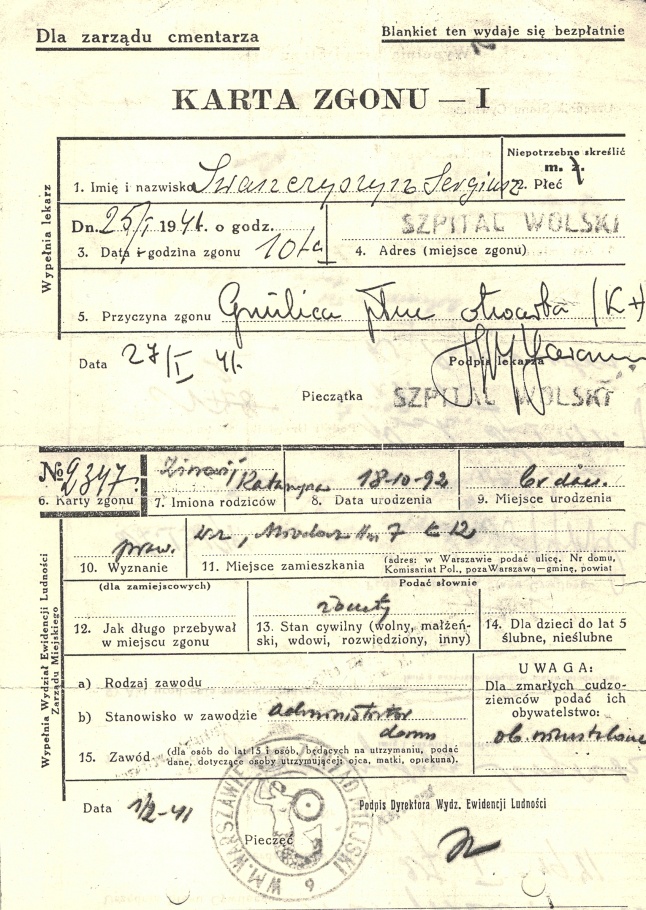 Dla zarządu cmentarza
Blankiet ten wydaje się bezpłatnie
KARTA ZGONU — I
Wypełnia lekarz
Niepotrzebne skreślić
m. ż.
1. Imię i nazwisko Iwanczyszyn Sergiusz 2. Płeć
Dn. 25/I 1941. o godz. 10ta
SZPITAL WOLSKI
3. Data i godzina zgonu
4. Adres (miejsce zgonu)
5. Przyczyna zgonu Gruźlica płuc otwarta (K+)
Data 27/I 41.
Podpis lekarza
Pieczątka
SZPITAL WOLSKI
№ 2347.
Katarzyna
18-10-92
6. Karty zgonu
7. Imiona rodziców
8. Data urodzenia
9. Miejsce urodzenia
Wypełnia Wydział Ewidencji Ludności
Zarządu Miejskiego
praw.
7 12
10. Wyznanie
11. Miejsce zamieszkania
(adres: w Warszawie podać ulicę, Nr domu,
Komisariat Pol., poza Warszawą—gminę, powiat
(dla zamiejscowych)
Podać słownie
12. Jak długo przebywał
w miejscu zgonu
13. Stan cywilny (wolny, małżeń-
ski, wdowi, rozwiedziony, inny)
14. Dla dzieci do lat 5
ślubne, nieślubne
a) Rodzaj zawodu
b) Stanowisko w zawodzie administrator
domu
15. Zawód
(dla osób do lat 15 i osób, będących na utrzymaniu, podać
dane, dotyczące osoby utrzymującej: ojca, matki, opiekuna).
UWAGA:
Dla zmarłych cudzo-
ziemców podać ich
obywatelstwo:
ob.
Data 1/2-41
Podpis Dyrektora Wydz. Ewidencji Ludności
Pieczęć
ZARZĄD MIEJSKI W M. WARSZAWIE
9